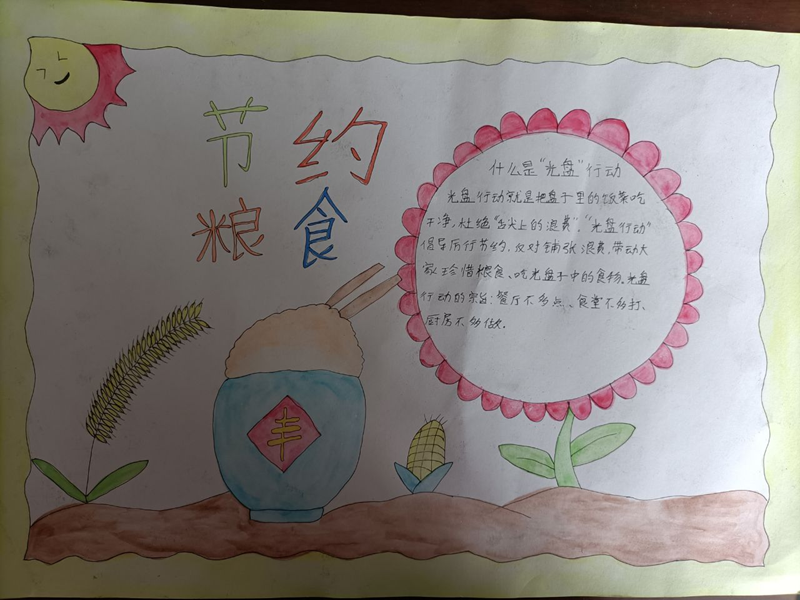 节约
粮食
什么是“光盘”行动
光盘行动就是把盘子里的饭菜吃
干净，杜绝“舌尖上的浪费”，“光盘行动”
倡导厉行节约，反对铺张浪费，带动大
家珍惜粮食、吃光盘子中的食物，光盘
行动的宗旨：餐厅不多点、食堂不多打、
厨房不多做．
丰